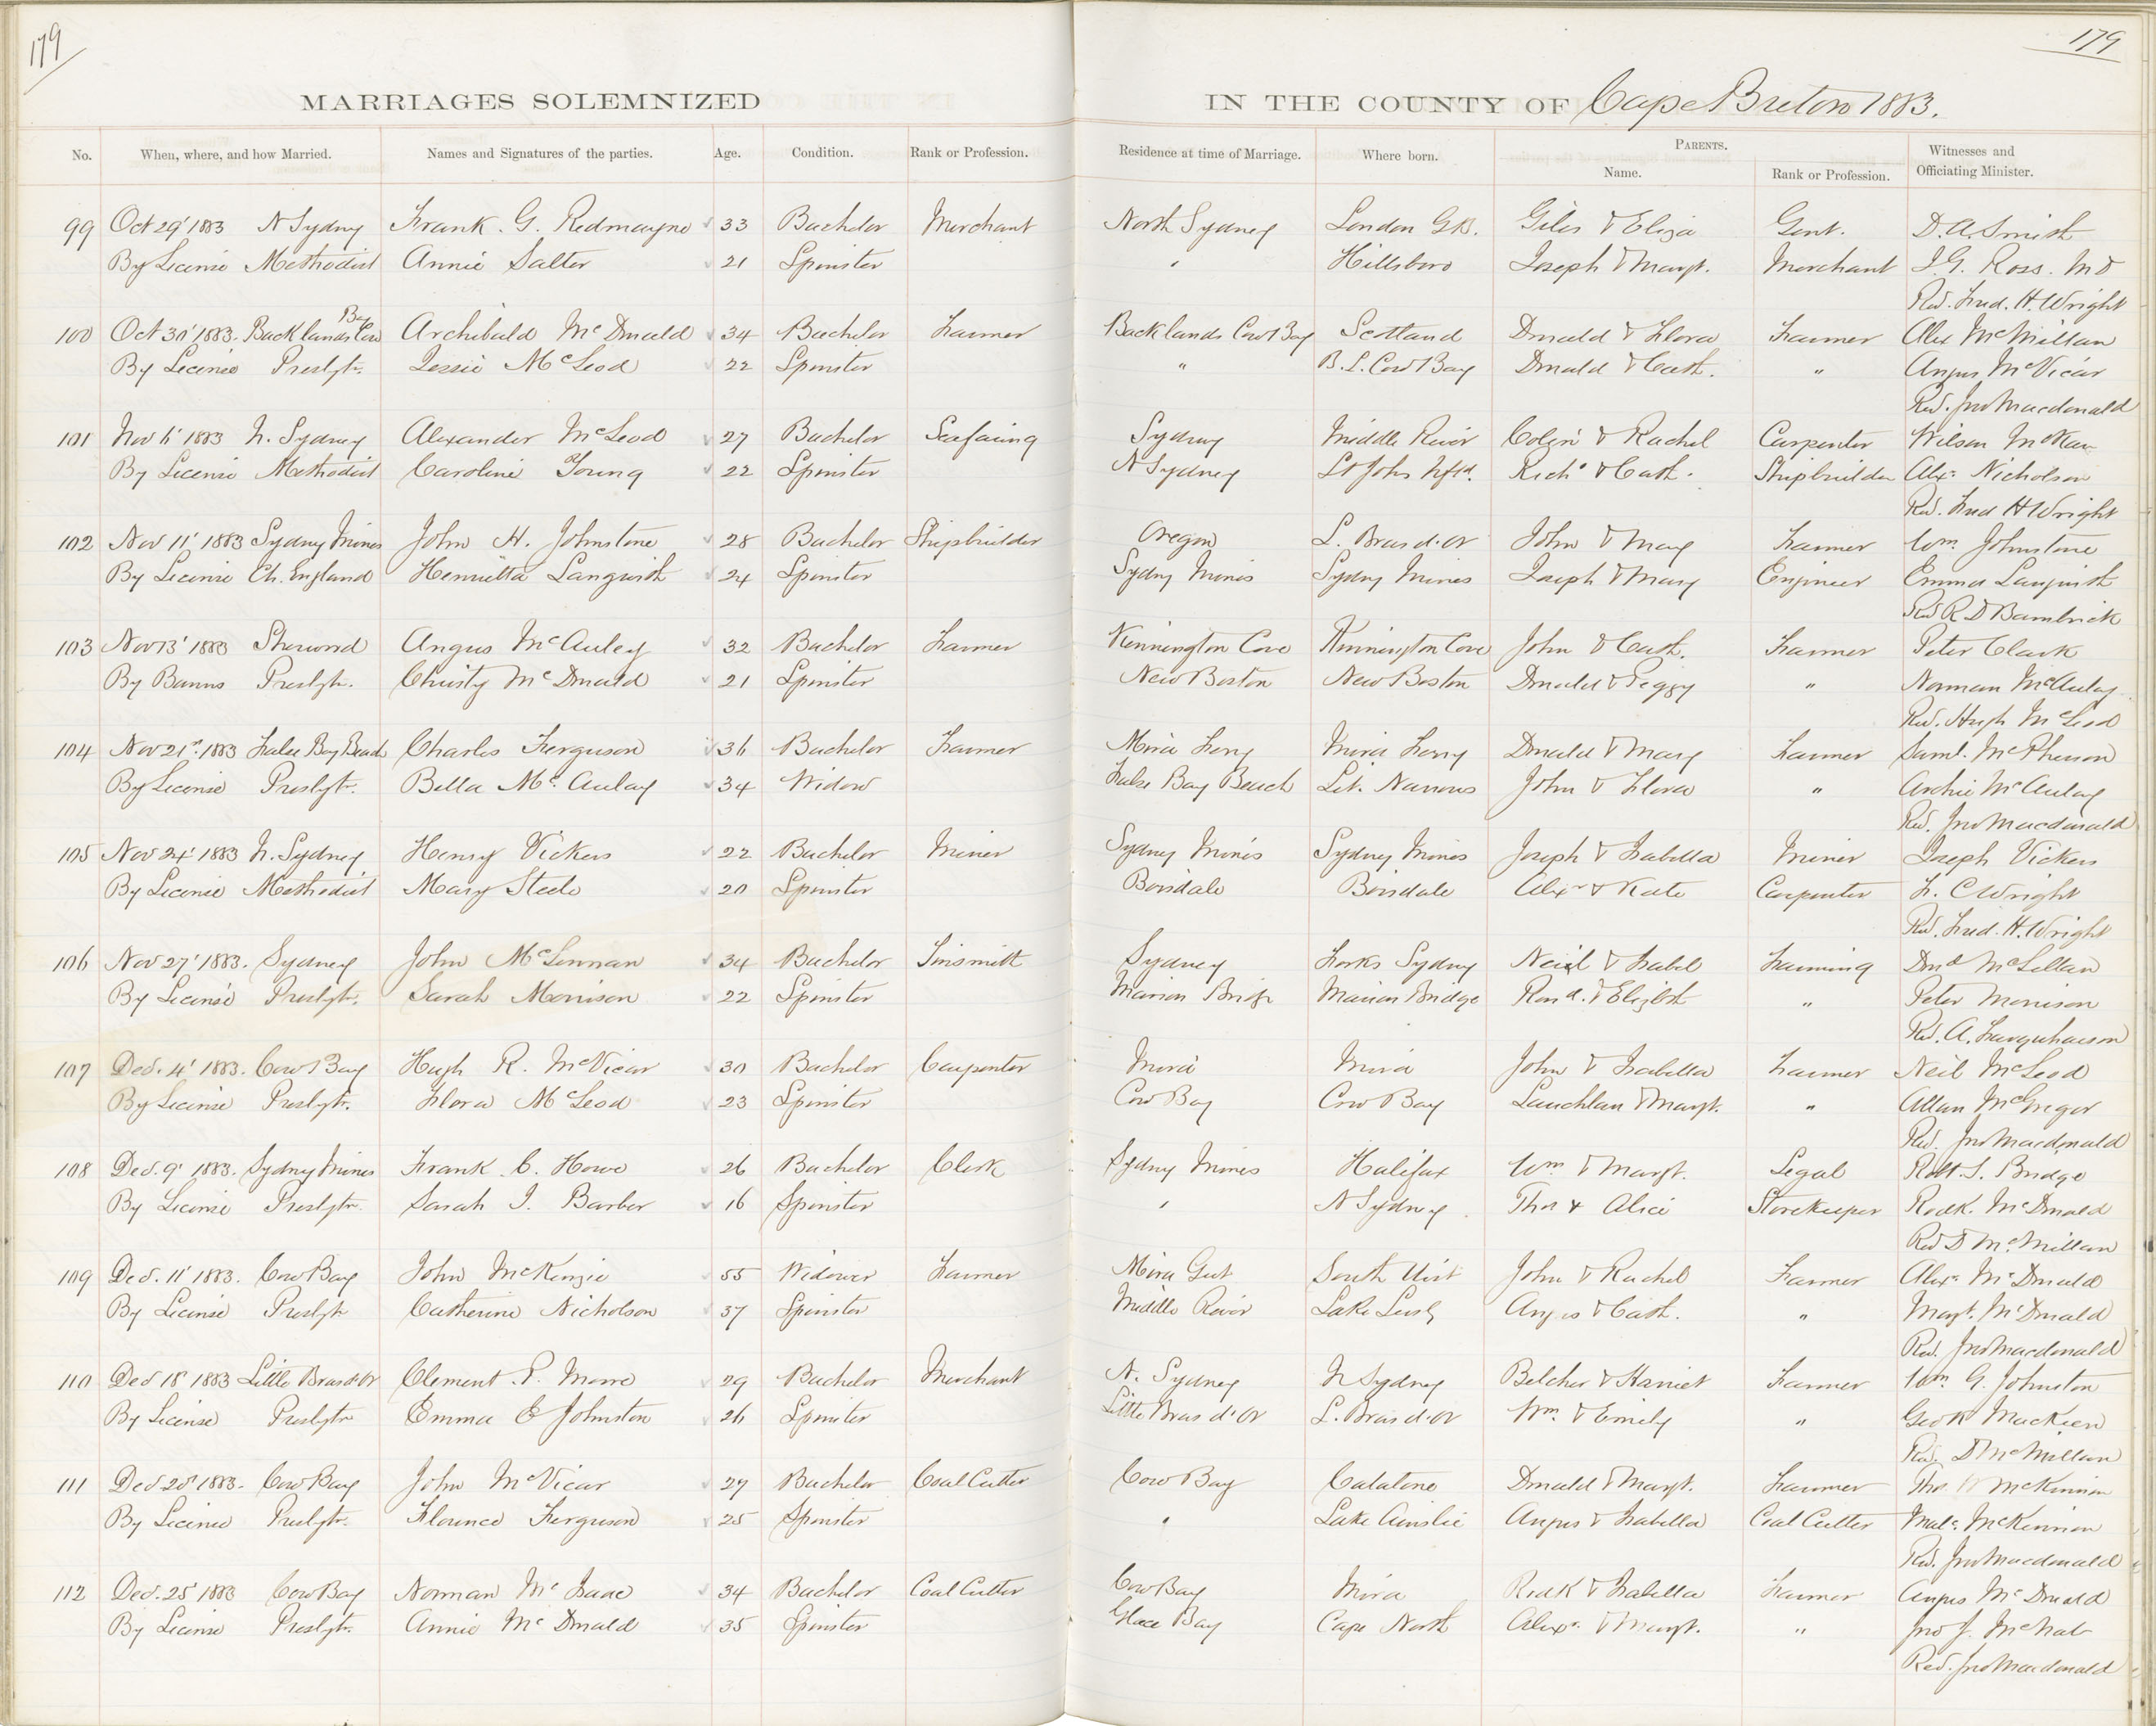 179
179
MARRIAGES SOLEMNIZED IN THE COUNTY OF Cape Breton 1883.
No. When, where, and how Married. Names and Signatures of the parties. Age. Condition. Rank or Profession. Residence at time of Marriage. Where born. PARENTS. Name. Rank or Profession. Witnesses and Officiating Minister.
99 Oct 29' 1883 N Sydney Frank. G. Redmayne 33 Bachelor Merchant North Sydney London GB. Giles & Eliza Gent. D. A. Smith
By License Methodist Annie Salter 21 Spinster " Hillsboro Joseph & Margt. Merchant J. G. Ross. MD
Rev. Fred. H. Wright
100 Oct 30' 1883. Backlands Cow Bay Archibald McDonald 34 Bachelor Farmer Backlands Cow Bay Scotland Donald & Flora Farmer Alex McMillan
By License Presbytr. Jessie McLeod 22 Spinster " B. L. Cow Bay Donald & Cath. " Angus McVicar
Rev. Jno Macdonald
101 Nov 11' 1883 N. Sydney Alexander McLeod 27 Bachelor Seafaring Sydney Middle River Colin & Rachel Carpenter Wilson
By License Methodist Caroline Young 22 Spinster N Sydney St Johns Nfld. Richd & Cath. Shipbuilder Alexr Nicholson
Rev. Fred H Wright
102 Nov 11' 1883 Sydney Mines John H. Johnstone 28 Bachelor Shipbuilder Oregon L. Bras d'Or John & Mary Farmer Wm. Johnstone
By License Ch. England Henrietta Langwith 24 Spinster Sydney Mines Sydney Mines Joseph & Mary Engineer Emma Langwith
Rev R D Bambrick
103 Nov 13' 1883 Sherwood Angus McAuley 32 Bachelor Farmer Kennington Cove Kennington Cove John & Cath. Farmer Peter Clark
By Banns Presbytr. Christy McDonald 21 Spinster New Boston New Boston Donald & Peggy " Norman McAulay
Rev. Hugh McLeod
104 Nov 21st 1883 False Bay Beach Charles Ferguson 36 Bachelor Farmer Mira Ferry Mira Ferry Donald & Mary Farmer Saml. McPherson
By License Presbytr. Bella Mc.Aulay 34 Widow False Bay Beach Lit. Narrows John & Flora " Archie McAulay
Rev. Jno Macdonald
105 Nov 24' 1883 N. Sydney Henry Vickers 22 Bachelor Miner Sydney Mines Sydney Mines Joseph & Isabella Miner Joseph Vickers
By License Methodist Mary Steele 20 Spinster Boisdale Boisdale Alexr & Kate Carpenter F. C Wright
Rev. Fred. H. Wright
106 Nov 27' 1883. Sydney John McLennan 34 Bachelor Tinsmith Sydney Forks Sydney Neil & Isabel Farming Dond McLellan
By License Presbytr. Sarah Morrison 22 Spinster Marion Bridge Marion Bridge Rond. & Elizbth " Peter Morrison
Rev. A. Farquharson
107 Dec. 4' 1883. Cow Bay Hugh R. McVicar 30 Bachelor Carpenter Mira Mira John & Isabella Farmer Neil McLeod
By License Presbytr. Flora McLeod 23 Spinster Cow Bay Cow Bay Lauchlan & Margt. " Allan McGregor
Rev. Jno Macdonald
108 Dec. 9' 1883. Sydney Mines Frank C. Howe 26 Bachelor Clerk Sydney Mines Halifax Wm & Margt. Legal Robt. S. Bridge
By License Presbytr. Sarah J. Barber 16 Spinster " N Sydney Thos & Alice Storekeeper Rodk. McDonald
Rev D McMillan
109 Dec. 11' 1883. Cow Bay John McKenzie 55 Widower Farmer Mira Gut South Uist John & Rachel Farmer Alexr. McDonald
By License Presbytr Catherine Nicholson 37 Spinster Middle River Lake Angus & Cath. " Margt. McDonald
Rev. Jno Macdonald
110 Dec 18' 1883 Little Bras d'Or Clement P. Moore 29 Bachelor Merchant N. Sydney N Sydney Belcher & Harriet Farmer Wm. G. Johnston
By License Presbytr Emma E Johnston 26 Spinster Little Bras d'Or L. Bras d'Or Wm. & Emily " Geo K MacKeen
Rev. D McMillan
111 Dec 20' 1883. Cow Bay John McVicar 27 Bachelor Coal Cutter Cow Bay Catalone Donald & Margt. Farmer Thos McKinnon
By License Presbytr. Florence Ferguson 25 Spinster " Lake Ainslie Angus & Isabella Coal Cutter Malc. McKinnon
Rev. Jno Macdonald
112 Dec. 25' 1883 Cow Bay Norman Mc Isaac 34 Bachelor Coal Cutter Cow Bay Mira Rodk & Isabella Farmer Angus McDonald
By License Presbytr. Annie McDonald 35 Spinster Glace Bay Cape North Alexr. & Margt. " Jno J. McNab
Rev. Jno Macdonald